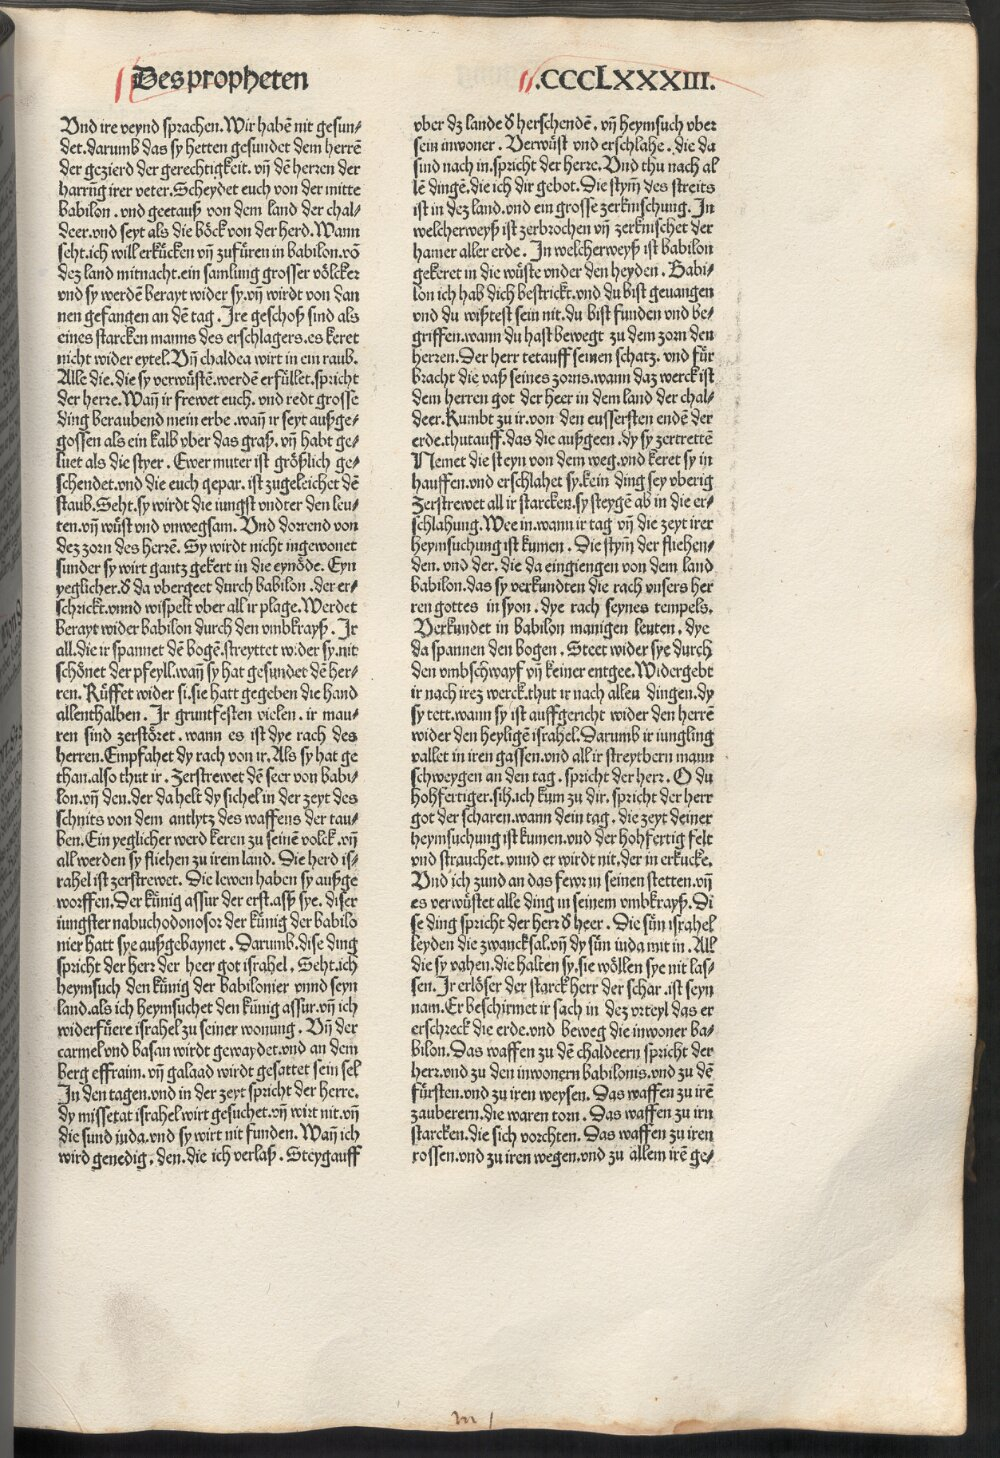 Des propheten
.CCCLXXXIII.
Vnd ire veynd sprachen. Wir habẽ nit gesun⸗
det. darumb das sy hetten gesundet dem herrẽ
der gezierd der gerechtigkeit. vñ dẽ herren der
harrũg irer veter. Scheydet euch von der mitte
babilon . vnd geetauß von dem land der chal⸗
deer. vnd seyt als die böck von der herd. Wann
seht. ich will erkücken vñ zufüren in babilon. võ
dez land mitnacht. ein samlung grosser völcker
vnd sy werdẽ berayt wider sy. vñ wirdt von dan
nen gefangen an dẽ tag . Ire geschoß sind als
eines starcken manns des erschlagers. es keret
nicht wider eytel. Vñ chaldea wirt in ein raub.
Alle die. die sy verwüstẽ. werdẽ erfüllet. spricht
der herre. Wañ ir frewet euch. vnd redt grosse
ding beraubend mein erbe . wañ ir seyt außge⸗
gossen als ein kalb vber das graß. vñ habt ge⸗
luet als die styer . Ewer muter ist größlich ge⸗
schendet. vnd die euch gepar. ist zugeleichet dẽ
staub. Seht. sy wirdt die iungst vndter den leu⸗
ten. vñ wüst vnd vnwegsam. Vnd dorrend von
dez zorn des herrẽ. Sy wirdt nicht ingewonet
sunder sy wirt gantz gekert in die eynöde. Eyn
yeglicher. ð da vbergeet durch babilon . der er⸗
schrickt. vnnd wispelt vber all ir plage. Werdet
berayt wider babilon durch den vmbkrayß . Ir
all. die ir spannet dẽ bogẽ. streyttet wider sy. nit
schönet der pfeyll. wañ sy hat gesundet dẽ her⸗
ren. Rüffet wider si. sie hatt gegeben die hand
allenthalben . Ir gruntfesten vielen . ir mau⸗
ren sind zerstöret . wann es ist dye rach des
herren. Empfahet dy rach von ir. Als sy hat ge
than. also thut ir . Zerstrewet dẽ seer von babi⸗
lon. vñ den. der da helt dy sichel in der zeyt des
schnits von dem antlytz des waffens der tau⸗
ben. Ein yeglicher werd keren zu seinẽ volck. vñ
all werden sy fliehen zu irem land. Die herd is⸗
rahel ist zerstrewet. Die lewen haben sy außge
worffen. Der künig assur der erst. aß sye. diser
iungster nabuchodonosor der künig der babilo
nier hatt sye außgebaynet . Darumb. dise ding
spricht der herr der heer got israhel . Seht. ich
heymsuch den künig der babilonier vnnd seyn
land. als ich heymsuchet den künig assur. vñ ich
widerfüere israhel zu seiner wonung . Vñ der
carmel vnd basan wirdt gewaydet. vnd an dem
berg effraim. vñ galaad wirdt gesattet sein sel
In den tagen. vnd in der zeyt spricht der herre.
dy missetat israhel wirt gesuchet. vñ wirt nit. vñ
die sund iuda. vnd sy wirt nit funden. Wañ ich
wird genedig . den. die ich verlaß . Steyg auff
vber dz lande ð herschendẽ . vñ heymsuch vber
sein inwoner . Verwüst vnd erschlahe . die da
sind nach in. spricht der herre. Vnd thu nach al
lẽ dingẽ. die ich dir gebot. Die stym̃ des streits
ist in dez land. vnd ein grosse zerknischung. In
welcherweyß ist zerbrochen vñ zerknischet der
hamer aller erde . In welcherweyß ist babilon
gekeret in die wüste vnder den heyden . Babi⸗
lon ich hab dich bestrickt. vnd du bist geuangen
vnd du wißtest sein nit. du bist funden vnd be⸗
griffen. wann du hast bewegt zu dem zorn den
herren. Der herr tet auff seinen schatz. vnd für
bracht die vaß seines zorns. wann daz werck ist
dem herren got der heer in dem land der chal⸗
deer. Kumbt zu ir. von den eussersten endẽ der
erde. thut auff. das die außgeen . dy sy zertrettẽ
Nemet die steyn von dem weg. vnd keret sy in
hauffen. vnd erschlahet sy. kein ding sey vberig
Zerstrewet all ir starcken. sy steygẽ ab in die er⸗
schlahung. Wee in. wann ir tag vñ die zeyt irer
heymsuchung ist kumen . Die stym̃ der fliehen⸗
den. vnd der. die da eingiengen von dem land
babilon. das sy verkundten die rach vnsers her
ren gottes in syon . dye rach seynes tempels.
Verkundet in babilon manigen leuten . dye
da spannen den bogen . Steet wider sye durch
den vmbschwayf vñ keiner entgee. Widergebt
ir nach irez werck. thut ir nach allen dingen. dy
sy tett. wann sy ist auffgericht wider den herrẽ
wider den heyligẽ israhel. Darumb ir iungling
vallet in iren gassen. vnd all ir streytbern mann
schweygen an den tag . spricht der herr. O du
hohfertiger. sih. ich kum zu dir. spricht der herr
got der scharen. wann dein tag . die zeyt deiner
heymsuchung ist kumen. vnd der hohfertig felt
vnd strauchet. vnnd er wirdt nit. der in erkucke.
Vnd ich zund an das fewr in seinen stetten. vñ
es verwüstet alle ding in seinem vmbkrayß. Di
se ding spricht der herr ð heer . Die sün israhel
leyden die zwancksal. vñ dy sün iuda mit in . All
die sy vahen. die halten sy. sie wöllen sye nit las⸗
sen. Ir erlöser der starck herr der schar . ist seyn
nam. Er beschirmet ir sach in dez vrteyl das er
erschreck die erde. vnd beweg die inwoner ba⸗
bilon. Das waffen zu dẽ chaldeern spricht der
herr. vnd zu den inwonern babilonis. vnd zu dẽ
fürsten. vnd zu iren weysen. Das waffen zu irẽ
zauberern. die waren torn . Das waffen zu irn
starcken. die sich vorchten. Das waffen zu iren
rossen. vnd zu iren wegen. vnd zu allem irẽ ge⸗